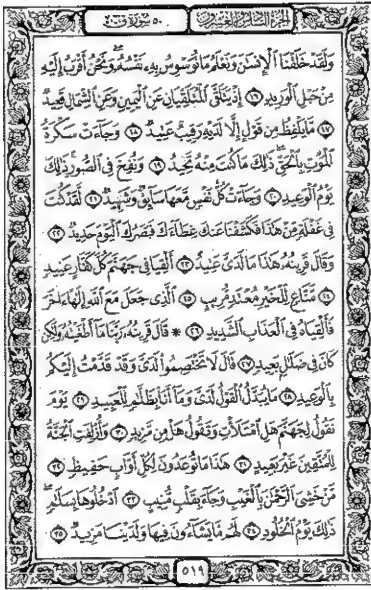 الجزء السادس والعشرون
٥٠ سورة ق
وَلَقَدْ خَلَقْنَا الْإِنسَٰنَ وَنَعْلَمُ مَا تُوَسْوِسُ بِهِۦ نَفْسُهُۥ وَنَحْنُ أَقْرَبُ إِلَيْهِ
مِنْ حَبْلِ الْوَرِيدِ ١٦ إِذْ يَتَلَقَّى الْمُتَلَقِّيَانِ عَنِ الْيَمِينِ وَعَنِ الشِّمَالِ قَعِيدٌ
١٧ مَّا يَلْفِظُ مِن قَوْلٍ إِلَّا لَدَيْهِ رَقِيبٌ عَتِيدٌ ١٨ وَجَآءَتْ سَكْرَةُ
الْمَوْتِ بِالْحَقِّ ذَٰلِكَ مَا كُنتَ مِنْهُ تَحِيدُ ١٩ وَنُفِخَ فِي الصُّورِ ذَٰلِكَ
يَوْمُ الْوَعِيدِ ٢٠ وَجَآءَتْ كُلُّ نَفْسٍ مَّعَهَا سَآئِقٌ وَشَهِيدٌ ٢١ لَّقَدْ كُنتَ
فِي غَفْلَةٍ مِّنْ هَٰذَا فَكَشَفْنَا عَنكَ غِطَآءَكَ فَبَصَرُكَ الْيَوْمَ حَدِيدٌ ٢٢
وَقَالَ قَرِينُهُۥ هَٰذَا مَا لَدَيَّ عَتِيدٌ ٢٣ أَلْقِيَا فِي جَهَنَّمَ كُلَّ كَفَّارٍ عَنِيدٍ
٢٤ مَّنَّاعٍ لِّلْخَيْرِ مُعْتَدٍ مُّرِيبٍ ٢٥ الَّذِي جَعَلَ مَعَ اللَّهِ إِلَٰهًا ءَاخَرَ
فَأَلْقِيَاهُ فِي الْعَذَابِ الشَّدِيدِ ٢٦ * قَالَ قَرِينُهُۥ رَبَّنَا مَآ أَطْغَيْتُهُۥ وَلَٰكِن
كَانَ فِي ضَلَٰلٍ بَعِيدٍ ٢٧ قَالَ لَا تَخْتَصِمُوا لَدَيَّ وَقَدْ قَدَّمْتُ إِلَيْكُم
بِالْوَعِيدِ ٢٨ مَا يُبَدَّلُ الْقَوْلُ لَدَيَّ وَمَآ أَنَا۠ بِظَلَّٰمٍ لِّلْعَبِيدِ ٢٩ يَوْمَ
نَقُولُ لِجَهَنَّمَ هَلِ امْتَلَأْتِ وَتَقُولُ هَلْ مِن مَّزِيدٍ ٣٠ وَأُزْلِفَتِ الْجَنَّةُ
لِلْمُتَّقِينَ غَيْرَ بَعِيدٍ ٣١ هَٰذَا مَا تُوعَدُونَ لِكُلِّ أَوَّابٍ حَفِيظٍ ٣٢
مَّنْ خَشِيَ الرَّحْمَٰنَ بِالْغَيْبِ وَجَآءَ بِقَلْبٍ مُّنِيبٍ ٣٣ ادْخُلُوهَا بِسَلَٰمٍ
ذَٰلِكَ يَوْمُ الْخُلُودِ ٣٤ لَهُم مَّا يَشَآءُونَ فِيهَا وَلَدَيْنَا مَزِيدٌ ٣٥
٥١٩